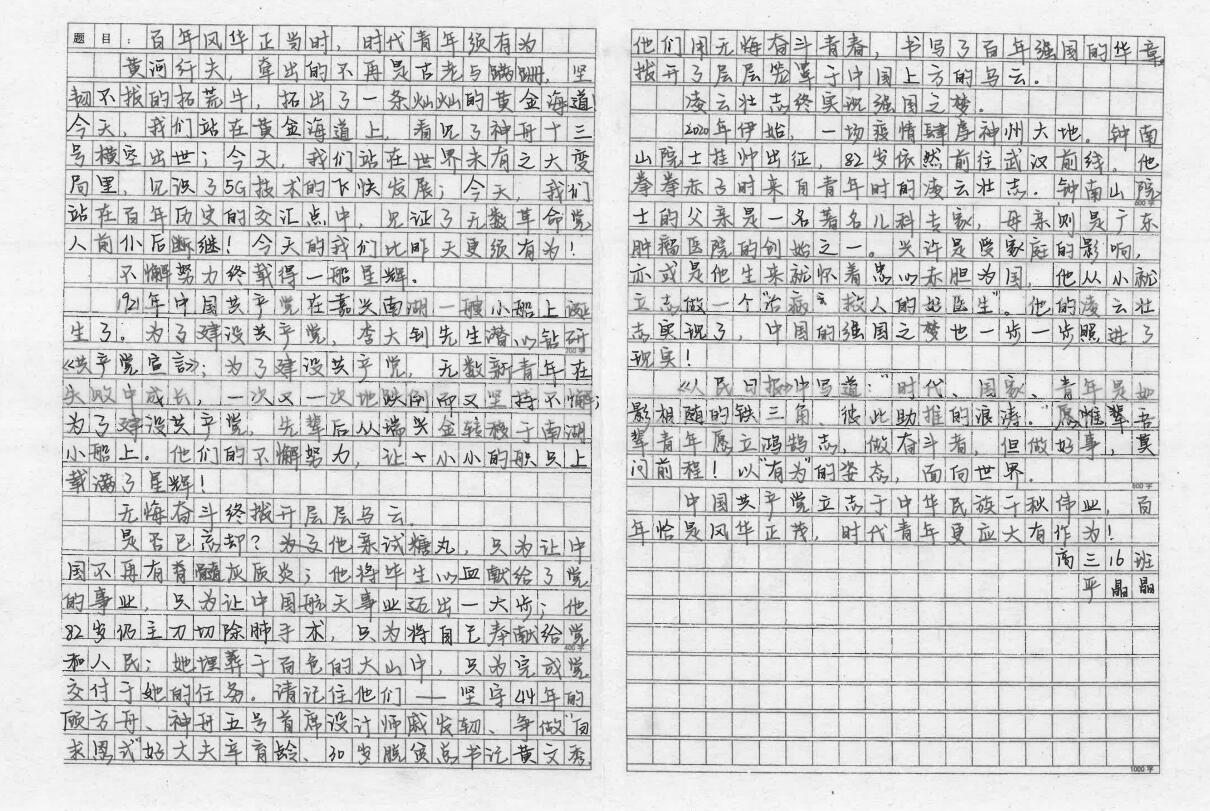 题目：百年风华正当时，时代青年须有为
黄河纤夫，牵出的不再是古老与蹒跚，坚
韧不拔的拓荒牛，拓出了一条灿灿的黄金海道！
今天，我们站在黄金海道上，看见了神舟十三
号横空出世；今天，我们站在世界未有之大变
局里，见识了5G技术的飞快发展；今天，我们
站在百年历史的交汇点中，见证了无数革命党
人前仆后断继！今天的我们比昨天更须有为！
不懈努力终载得一船星辉。
1921年中国共产党在嘉兴南湖一艘小船上诞
生了。为了建设共产党，李大钊先生潜心钻研
200字
《共产党宣言》；为了建设共产党，无数新青年在
失败中成长，一次又一次地跌倒而又坚持不懈；
为了建设共产党，先辈后从瑞兴金转移于南湖
小船上。他们的不懈努力，让小小的船只上
载满了星辉！
无悔奋斗终拨开层层乌云。
是否已忘却？为了他亲试糖丸，只为让中
国不再有脊髓灰质炎；他将毕生心血献给了党
的事业，只为让中国航天事业迈出一大步；他
82岁仍主刀切除肺手术，只为将自己奉献给党
400字
和人民；她埋葬于百色的大山中，只为完成党
交付于她的任务。请记住他们——坚守44年的
顾方舟、神舟五号首席设计师戚发轫、争做“白
求恩式”好大夫辛育龄、30岁脱贫总书记黄文秀，
他们用无悔奋斗青春，书写了百年强国的华章，
拨开了层层笼罩于中国上方的乌云。
凌云壮志终实现强国之梦。
2020年伊始，一场疫情肆虐神州大地。钟南
山院士挂帅出征，82岁依然前往武汉前线，他
拳拳赤子时来自青年时的凌云壮志。钟南山院
600字
士的父亲是一名著名儿科专家，母亲则是广东
肿瘤医院的创始之一。兴许是受家庭的影响，
亦或是他生来就怀着忠心赤胆为国，他从小就
立志做一个“治病救人的好医生”。他的凌云壮
志实现了，中国的强国之梦也一步一步照进了
现实！
《人民日报》中写道：“时代、国家、青年是如
影相随的铁三角，彼此助推的浪涛。”愿惟辈吾
辈青年愿立鸿鹄志，做奋斗者，但做好事，莫
问前程！以“有为”的姿态，面向世界。
800字
中国共产党立志于中华民族千秋伟业，百
年恰是风华正茂，时代青年更应大有作为！
高三16班
平晶晶
1000字